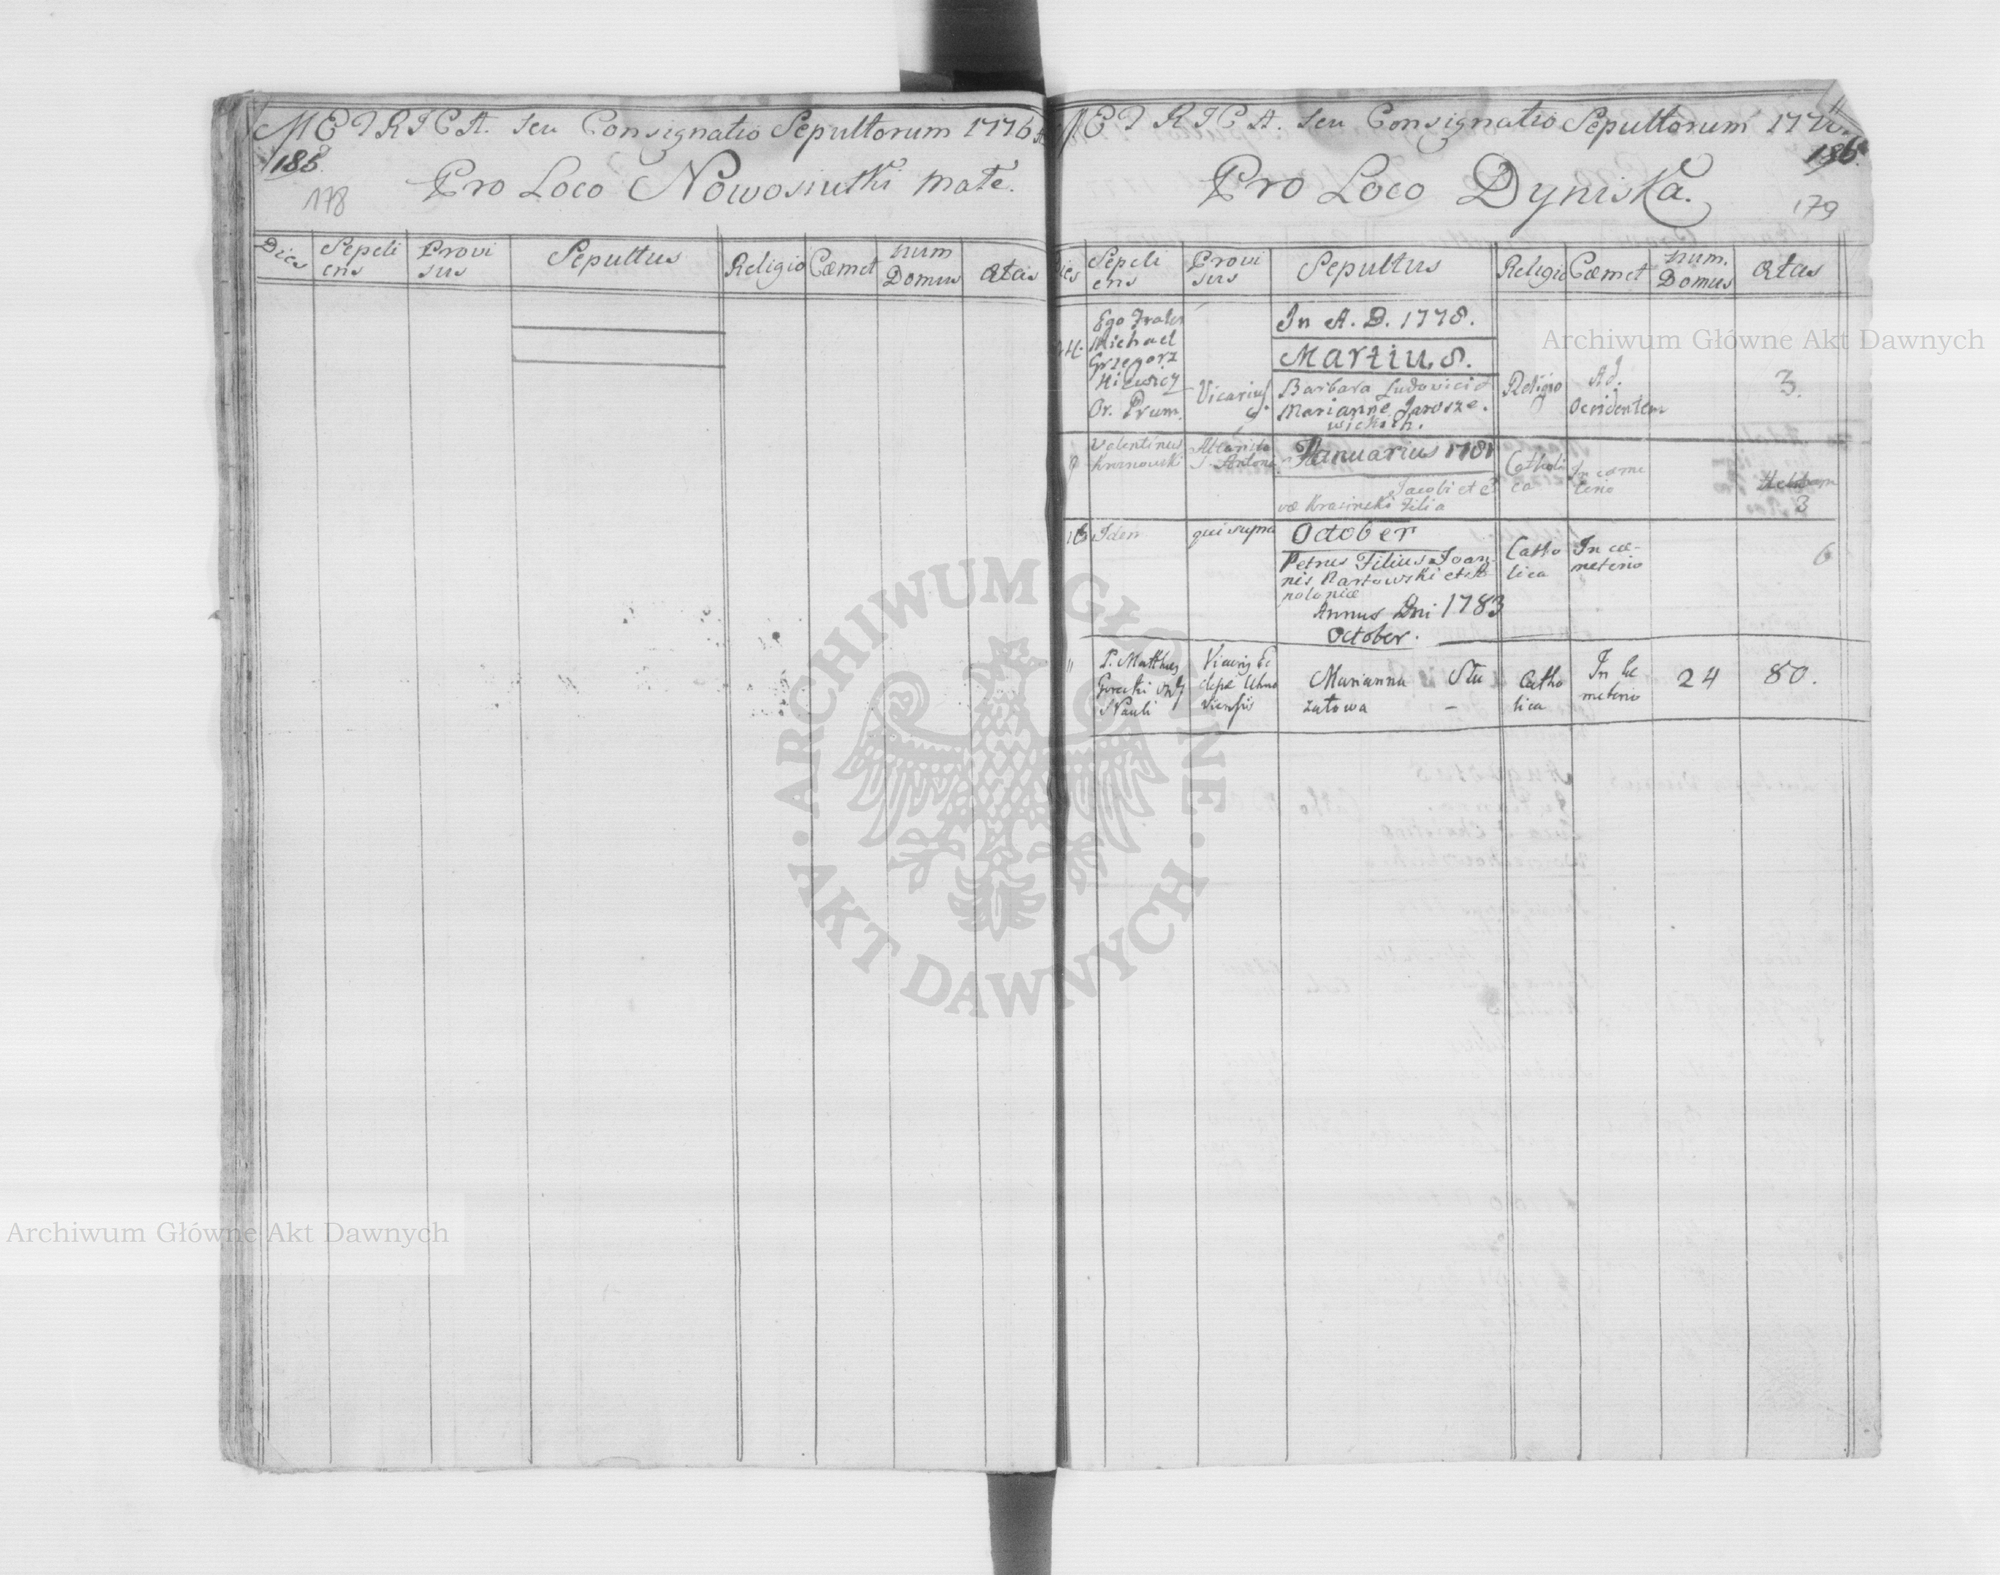 METRICA. seu Consignatio Sepultorum 1776
185.
178
Pro Loco Nowosiutki małe.
Dies
Sepeli
ens
Provi
sus
Sepultus
Religio
Cœmet
num
Domus
Ætas
METRICA. seu Consignatio Sepultorum
186.
179
Pro Loco Dyniska.
Dies
Sepeli
ens
Provi
sus
Sepultus
Religio
Cœmet
num.
Domus
Ætas
Ego Frater
Michael
Grzegorz
Or. Præm.
Vicarius
In A. D. 1778.
Martius.
Barbara Ludovici et
Marianne Jarosze
wickich.
Religio
Ad.
Occidentem
3.
Valentinus
Krasnowski
Altarista
S. Antoni
Januarius 1781
Jacobi et E
væ Krasinski Filia
Catholi
ca
In cœme
terio
3
16
Idem
qui supra
October
Petrus Filius Joan
nis Bartowski et A
poloniæ
Catho
lica
In cœ-
meterio
6
Annus Dni 1783
October.
11
P. Matthæus
Gorecki Ord
S Pauli
Vicarius Ec
clesiæ Uhno
viensis
Marianna Słu
załowa –
Catho
lica
In Cæ
meterio
24
80.
Archiwum Główne Akt Dawnych
ARCHIWUM GŁÓWNE
AKT DAWNYCH
Archiwum Główne Akt Dawnych